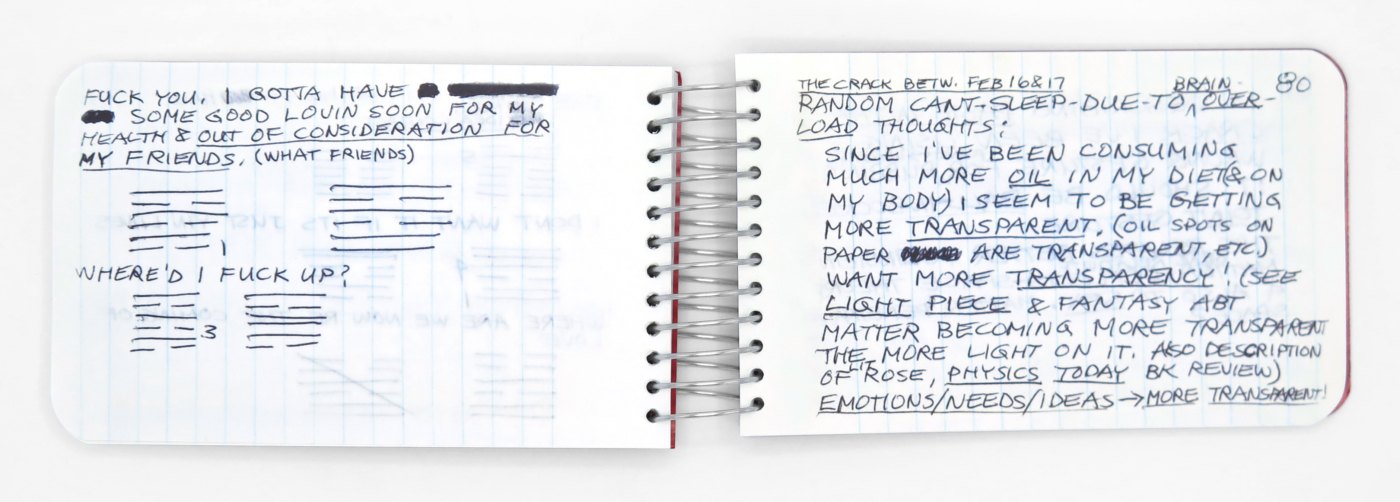 FUCK YOU. I GOTTA HAVE
SOME GOOD LOVIN SOON FOR MY
HEALTH & OUT OF CONSIDERATION FOR
MY FRIENDS. (WHAT FRIENDS)
1
WHERE'D I FUCK UP?
3
THE CRACK BETW. FEB 16&17 BRAIN- 80
RANDOM CANT-SLEEP-DUE-TO ^ OVER-
LOAD THOUGHTS:
SINCE I'VE BEEN CONSUMING
MUCH MORE OIL IN MY DIET(& ON
MY BODY) I SEEM TO BE GETTING
MORE TRANSPARENT. (OIL SPOTS ON
PAPER ARE TRANSPARENT, ETC.)
WANT MORE TRANSPARENCY! (SEE
LIGHT PIECE & FANTASY ABT
MATTER BECOMING MORE TRANSPARENT
THE MORE LIGHT ON IT. ALSO DESCRIPTION
OF LIT ROSE, PHYSICS TODAY BK REVIEW)
EMOTIONS/NEEDS/IDEAS → MORE TRANSPARENT!